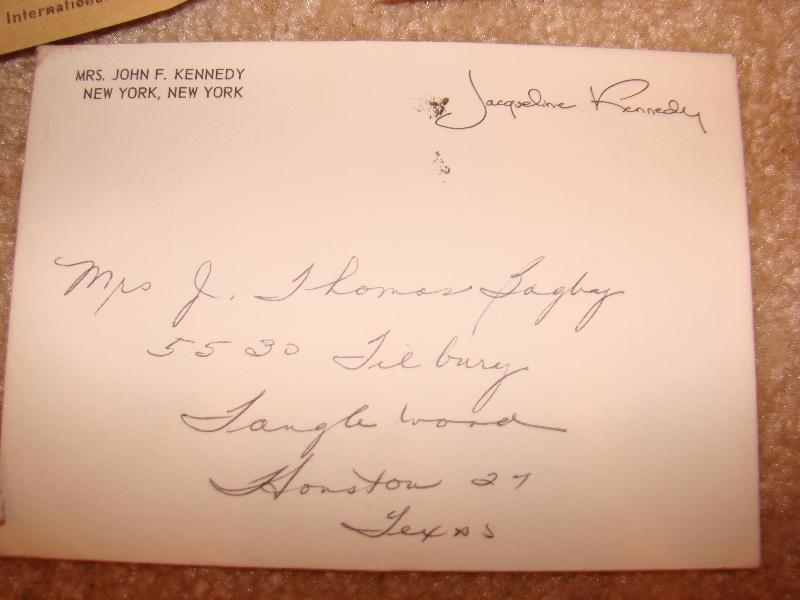 International
MRS. JOHN F. KENNEDY
NEW YORK, NEW YORK
Jacqueline Kennedy
Mrs J. Thomas Bagby
5530 Tilbury
Tangle wood
Houston 27
Texas